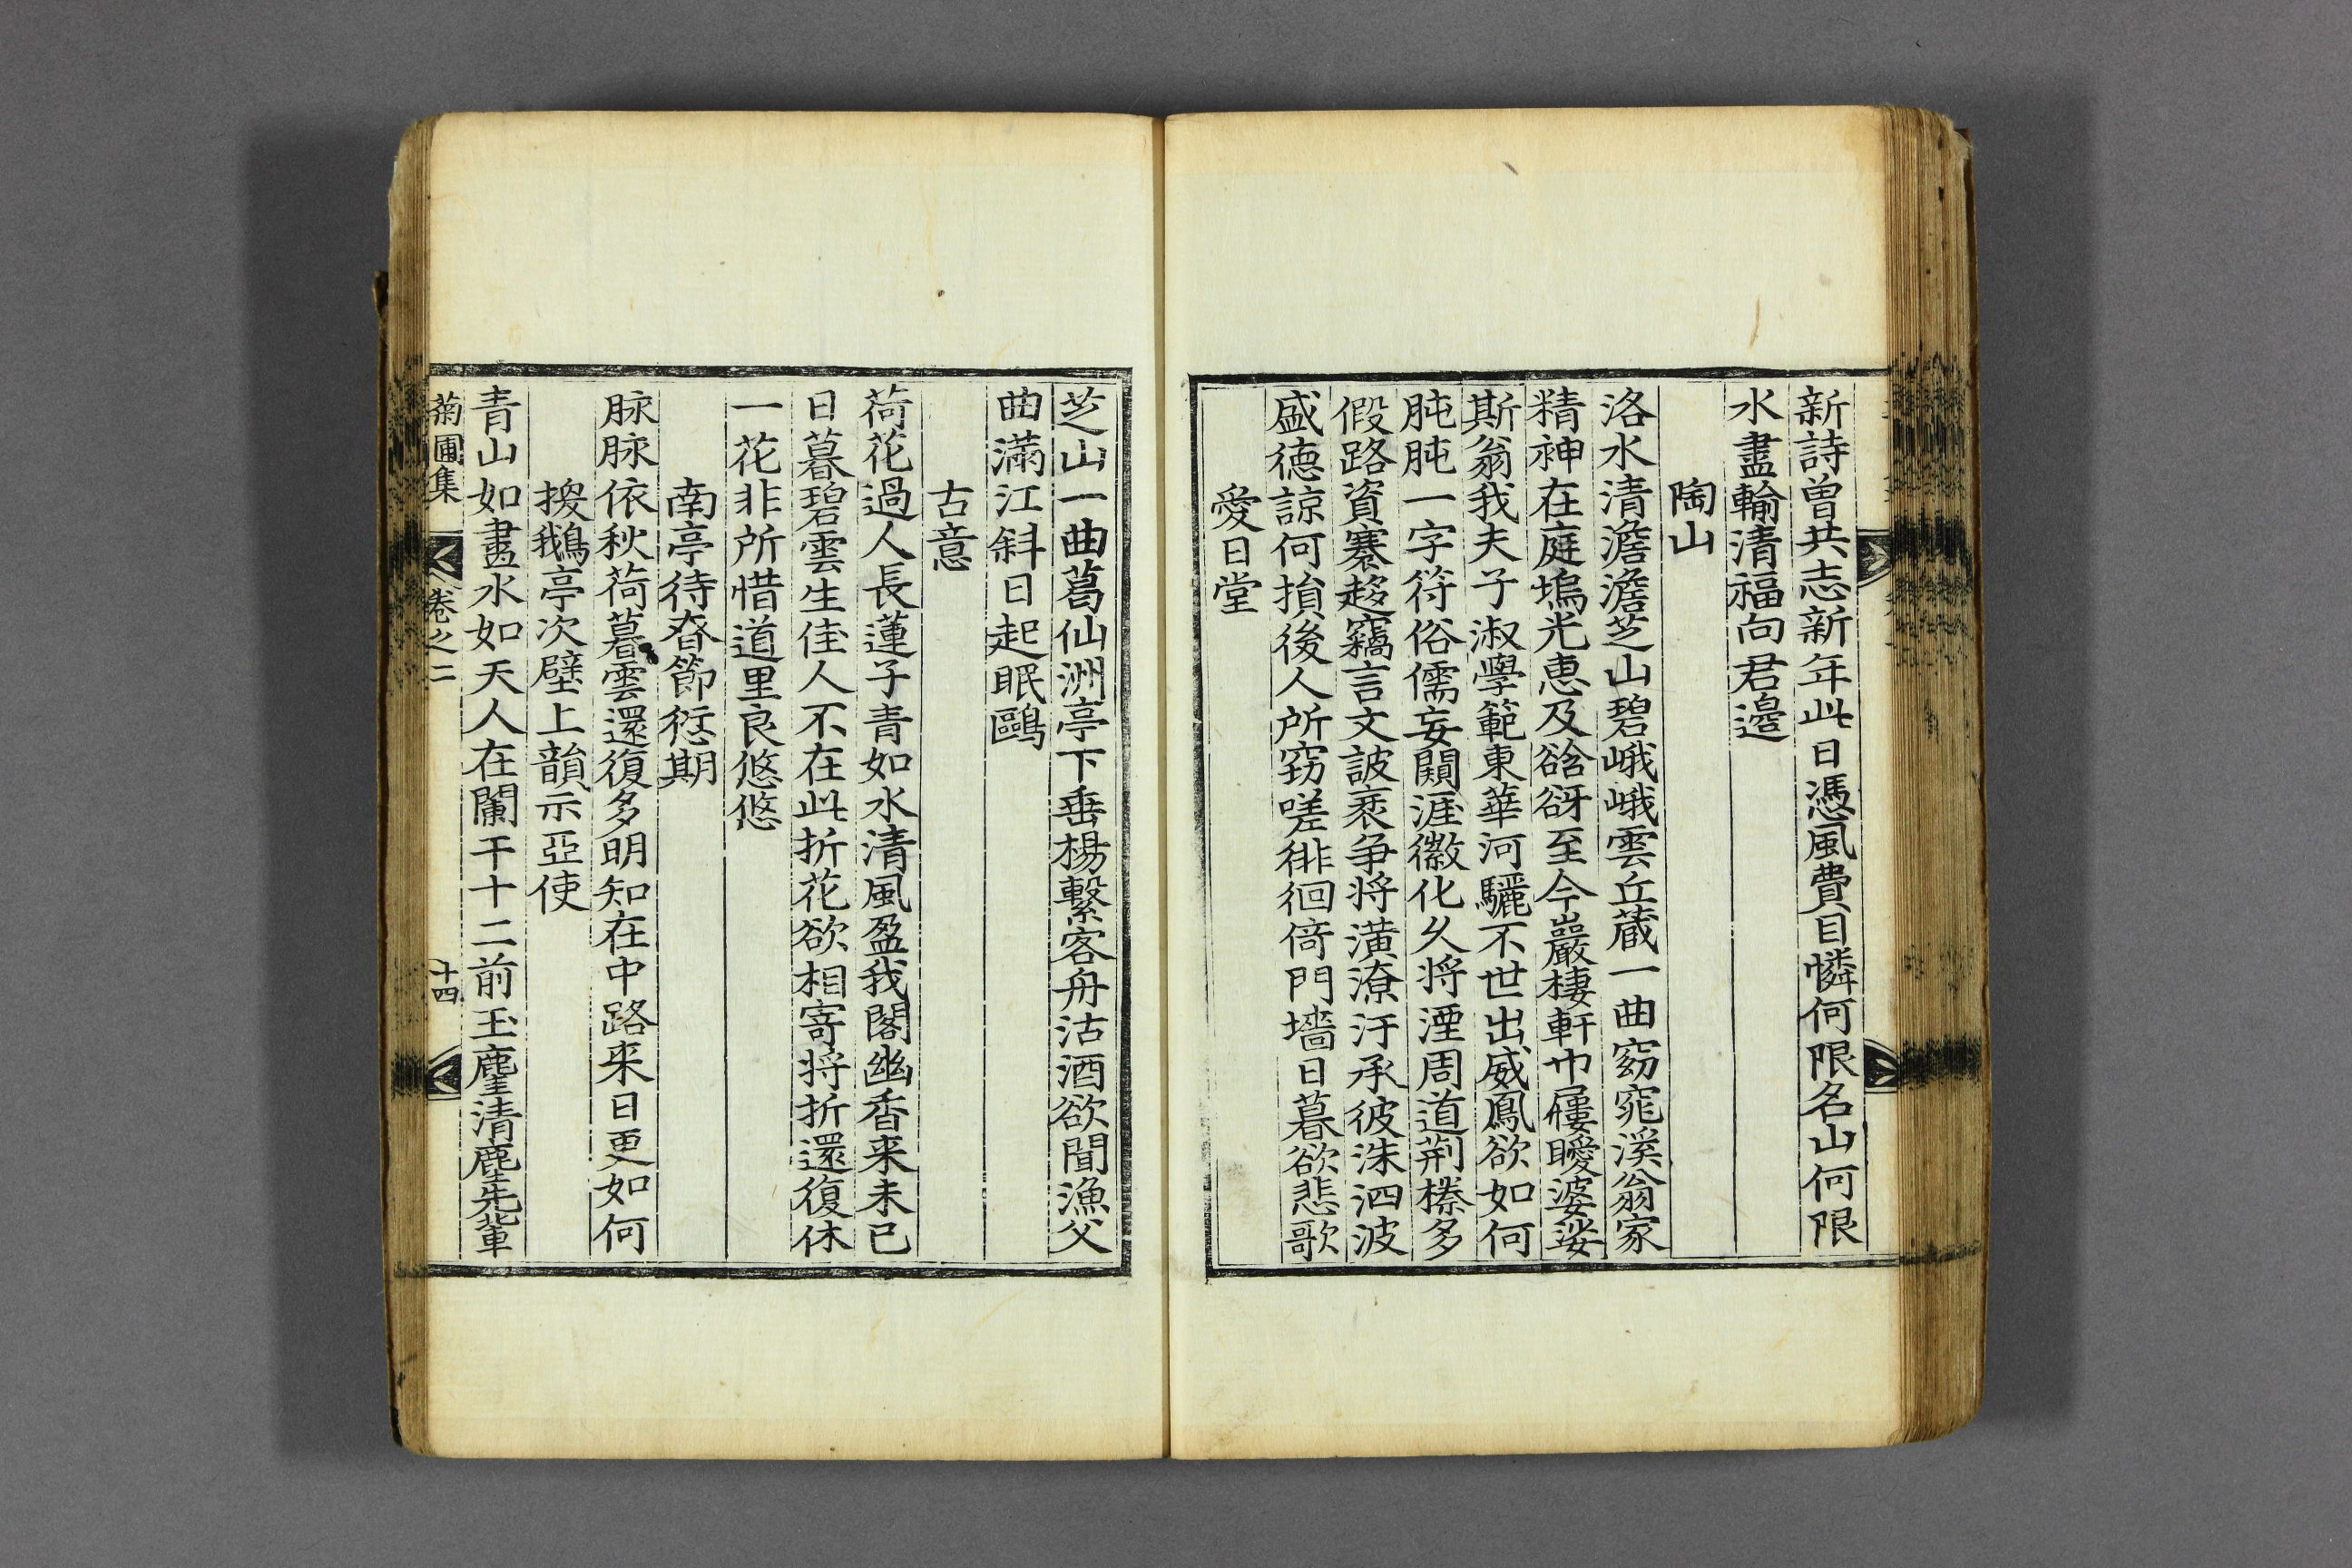 新詩曾共志新年此日憑風費目憐何限名山何限
水盡輸清福向君邊
陶山
洛水清澹澹芝山碧峨峨雲丘蔵一曲窈窕溪翁家
精神在庭塢光惠及谽谺至今巖棲軒巾屨曖婆娑
斯翁我夫子淑學範東華河驪不世出威鳳欲如何
肫肫一字符俗儒妄闚涯徽化久将湮周道荆榛多
假路資褰趍竊言文詖衺争将潢潦汙承彼洙泗波
盛徳諒何損後人所窃嗟徘徊倚門墻日暮欲悲歌
愛日堂
芝山一曲葛仙洲亭下垂楊繫客舟沽酒欲聞漁父
曲滿江斜日起眠鷗
古意
荷花過人長蓮子青如水清風盈我閣幽香来未已
日暮碧雲生佳人不在此折花欲相寄将折還復休
一花非所惜道里良悠悠
南亭待眘節愆期
脉脉依秋荷暮雲還復多明知在中路来日更如何
換鵝亭次壁上韻示亞使
青山如畫水如天人在闌干十二前玉麈清塵先輩
菊圃集 卷之二 十四